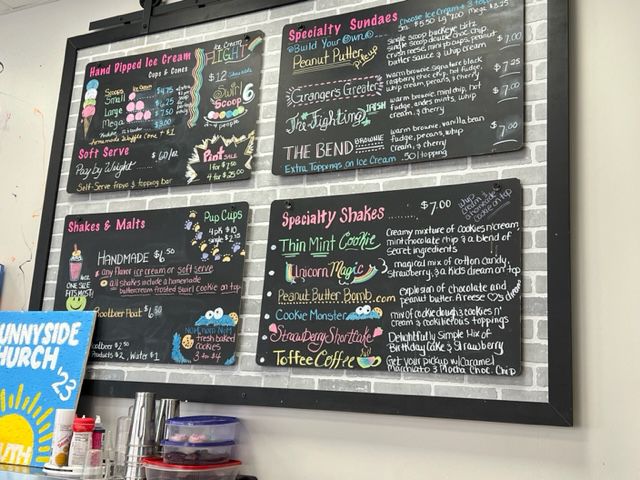 Hand Dipped Ice Cream
Cups & Cones
Scoops
Small $4.75
Large $6.25
Mega $7.50
$3.00
Homemade Waffle Cone + $1
Ice Cream
FLIGHT
$12
Swirl
Scoop 6
4 people
Pint SALE
1 for $7.50
4 for $25.00
Soft Serve
Pay by Weight ..... $.60/oz
Self-Serve froyo & topping bar
Specialty Sundaes
Choose Ice Cream + 3 toppings
@Build Your @own@
Sm $5.50 Lg 7.00 Mega $8.25
Peanut Butter Pickup
single scoop buckeye blitz
single scoop double choc chip
crush reese, mini pb cups, peanut
butter sauce & whip cream
$7.00
Granger's Greater
warm brownie, signature black
raspberry choc chip, hot fudge,
whip cream, pecans, & cherry
$7.25
The Fighting IRISH
warm brownie, mint chip, hot
fudge, andes mints, whip
cream, & cherry
$7.00
THE BEND BROWNIE
warm brownie, vanilla bean
fudge, pecans, whip
cream, & cherry
$7.00
Extra Toppings on Ice Cream .50/topping
Shakes & Malts
Pup Cups
4pk $10
single $2.75
HANDMADE $6.50
any flavor ice cream or soft serve
all shakes include a homemade
buttercream frosted swirl cookie on top
ONE
SIZE
FITS MOST!
Rootbeer Float $6.50
NOM NOM NOM
fresh baked
cookies
3 for $4
Rootbeer $2.50
Products $2, Water $1
Specialty Shakes ...... $7.00
whip
cream &
a homemade
cookie on top
Thin Mint Cookie
Creamy mixture of cookies n'cream
mint chocolate chip & a blend of
secret ingredients
Unicorn Magic
magical mix of cotton candy,
strawberry, & a kids dream on top
Peanut Butter Bomb.com
explosion of chocolate and
peanut butter. A reese cup's dream
Cookie Monster
mix of cookie dough & cookies n'
cream & cookilicious toppings
Strawberry Shortcake
Delightfully Simple Mix of
Birthday Cake & Strawberry
Toffee Coffee
Get your pickup w/ Caramel
Macchiato & Mocha Choc Chip
UNNYSIDE
HURCH
'23
UTH